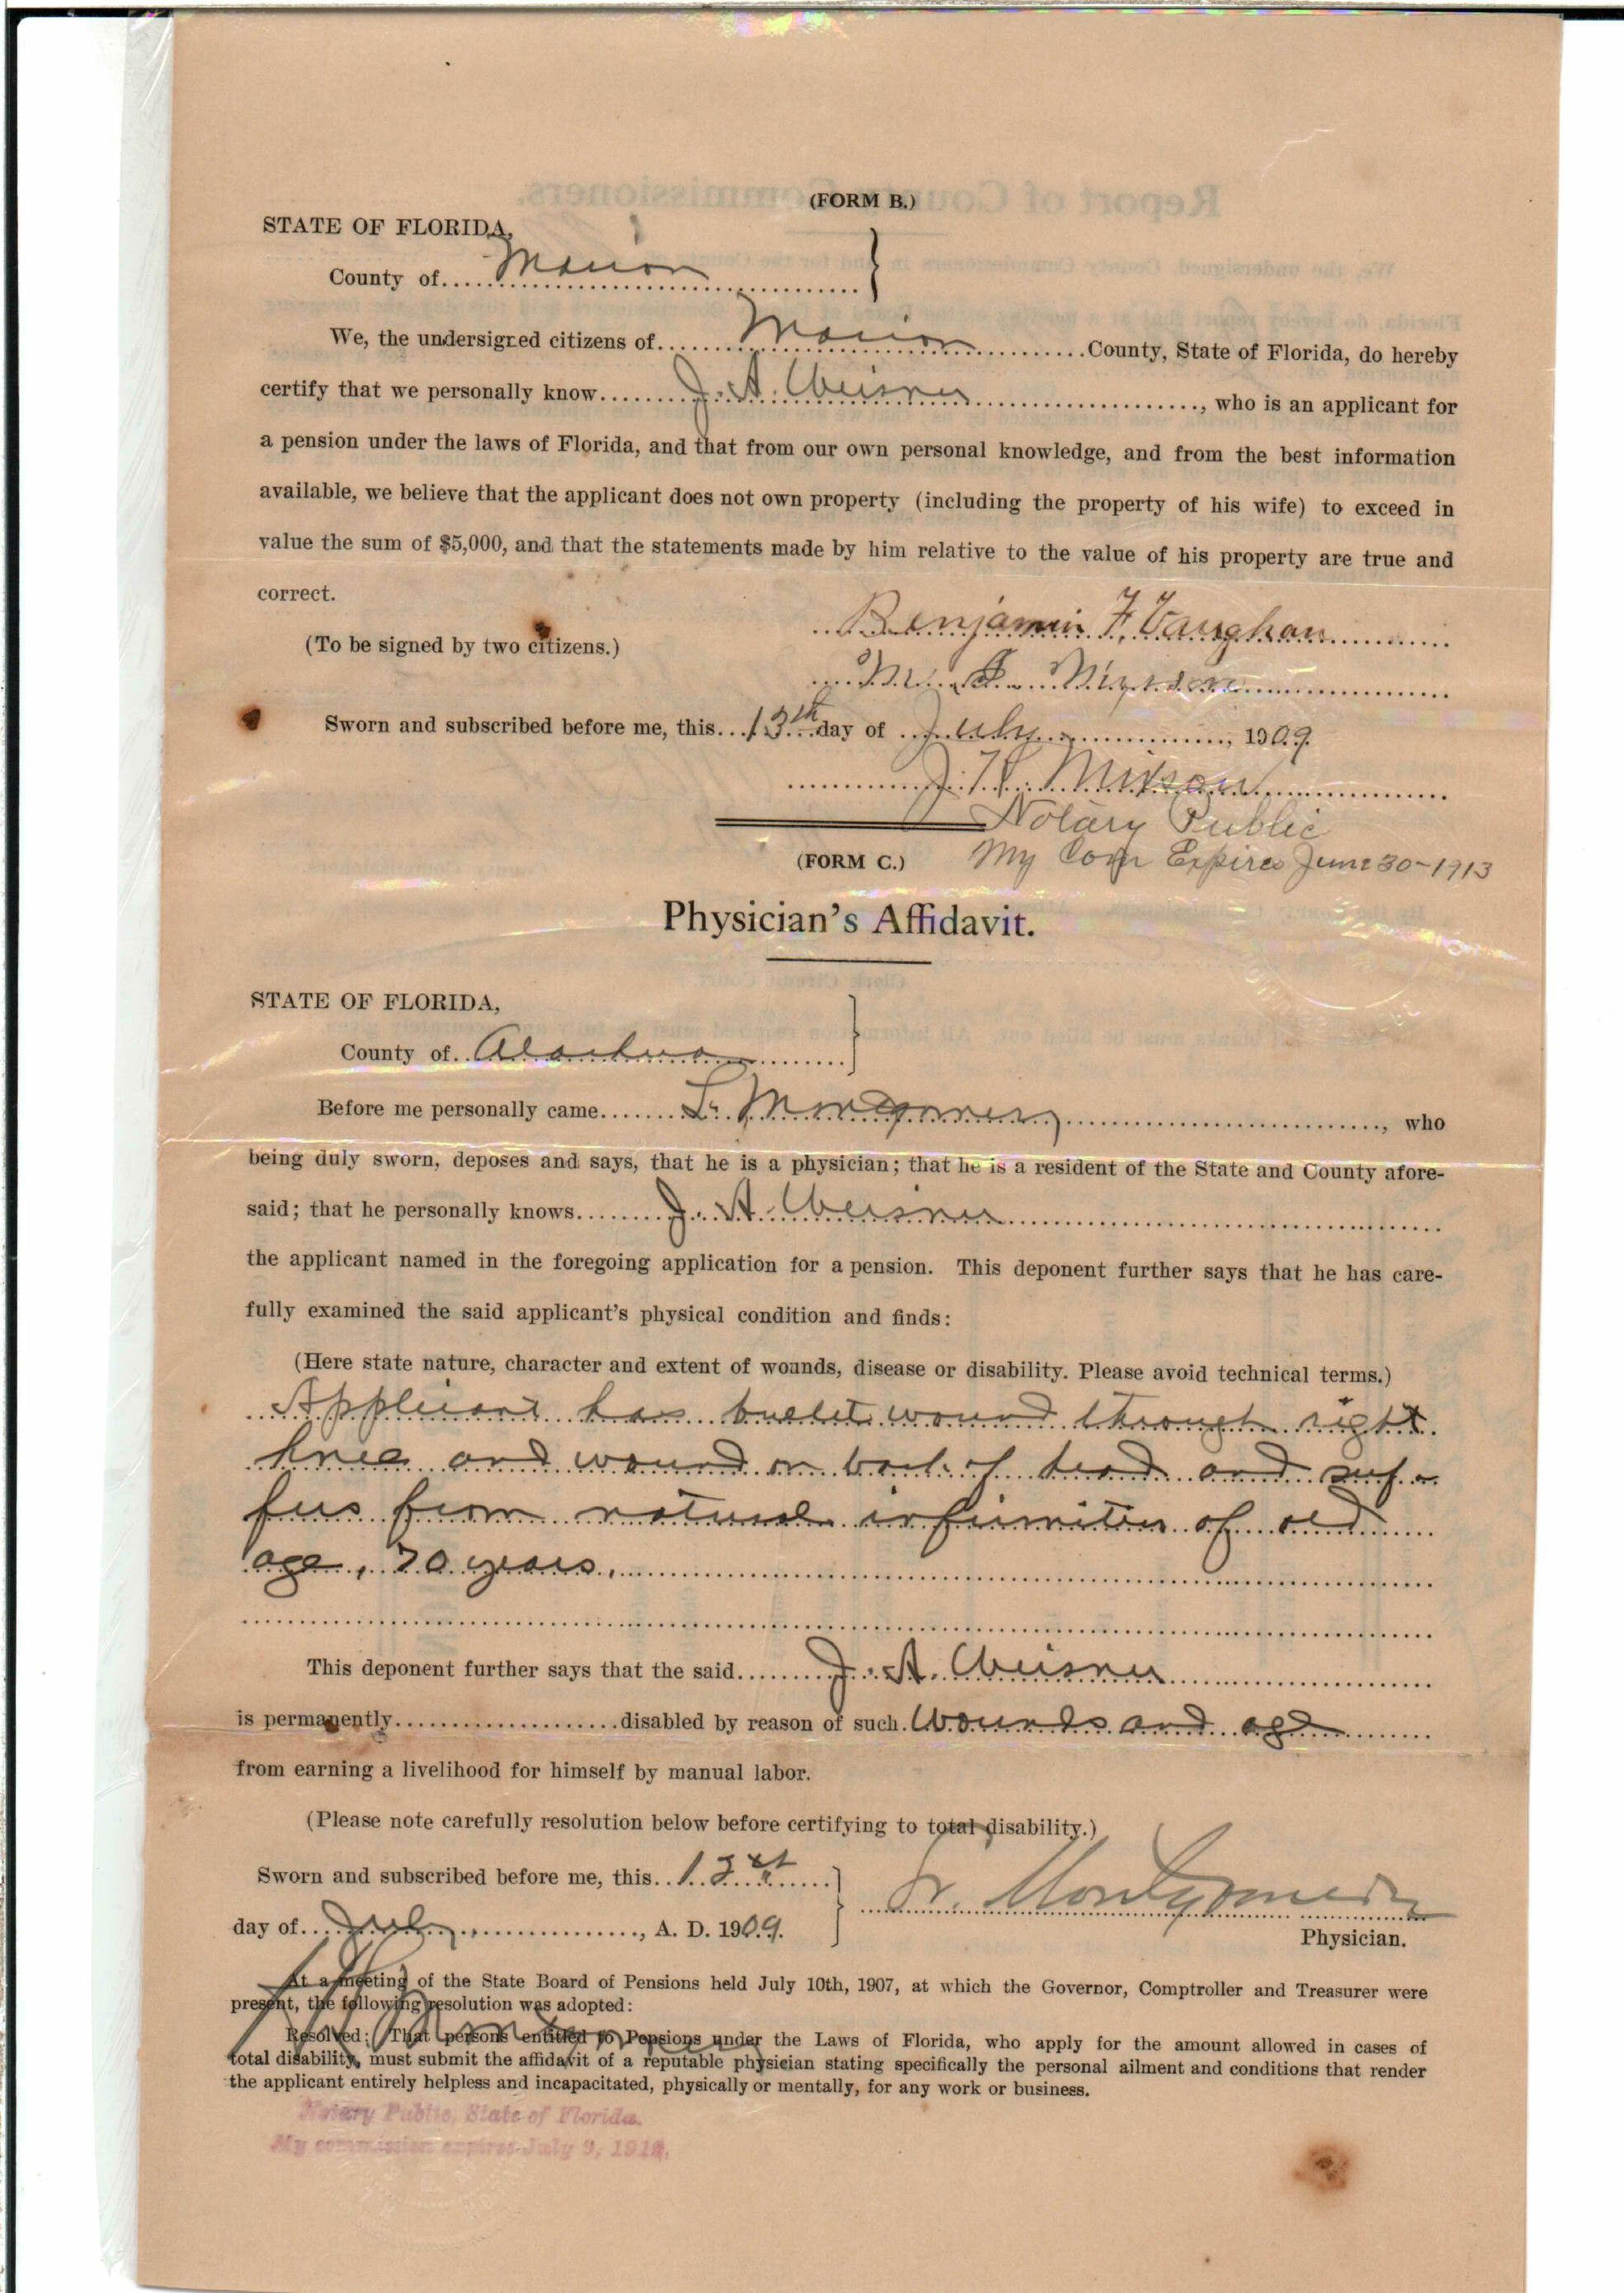 (FORM B.)
STATE OF FLORIDA,
County of Marion
We, the undersigned citizens of Marion County, State of Florida, do hereby
certify that we personally know J. A. Weisner, who is an applicant for
a pension under the laws of Florida, and that from our own personal knowledge, and from the best information
available, we believe that the applicant does not own property (including the property of his wife) to exceed in
value the sum of $5,000, and that the statements made by him relative to the value of his property are true and
correct.
Benjamin F. Vaughan
(To be signed by two citizens.)
Sworn and subscribed before me, this 13th day of July, 1909.
Mixson
Notary Public
(FORM C.) My Com Expires June 30-1913
Physician's Affidavit.
STATE OF FLORIDA,
County of Alachua
Before me personally came L. Montgomery, who
being duly sworn, deposes and says, that he is a physician; that he is a resident of the State and County afore-
said; that he personally knows J. A. Weisner
the applicant named in the foregoing application for a pension. This deponent further says that he has care-
fully examined the said applicant's physical condition and finds:
(Here state nature, character and extent of wounds, disease or disability. Please avoid technical terms.)
Applicant has bullet wound through right
knee and wound on back of head and suf-
fers from natural infirmities of old
age, 70 years.
This deponent further says that the said J. A. Weisner
is permanently disabled by reason of such Wounds and age
from earning a livelihood for himself by manual labor.
(Please note carefully resolution below before certifying to total disability.)
Sworn and subscribed before me, this
Montgomery
day of July, A. D. 1909.
Physician.
At a meeting of the State Board of Pensions held July 10th, 1907, at which the Governor, Comptroller and Treasurer were
present, the following resolution was adopted:
Resolved: That persons entitled to Pensions under the Laws of Florida, who apply for the amount allowed in cases of
total disability, must submit the affidavit of a reputable physician stating specifically the personal ailment and conditions that render
the applicant entirely helpless and incapacitated, physically or mentally, for any work or business.
Notary Public, State of Florida.
My commission expires July 9, 1912.